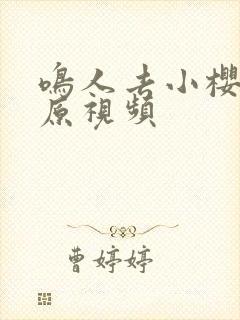 鳴人去小櫻
原視頻
曹婷婷